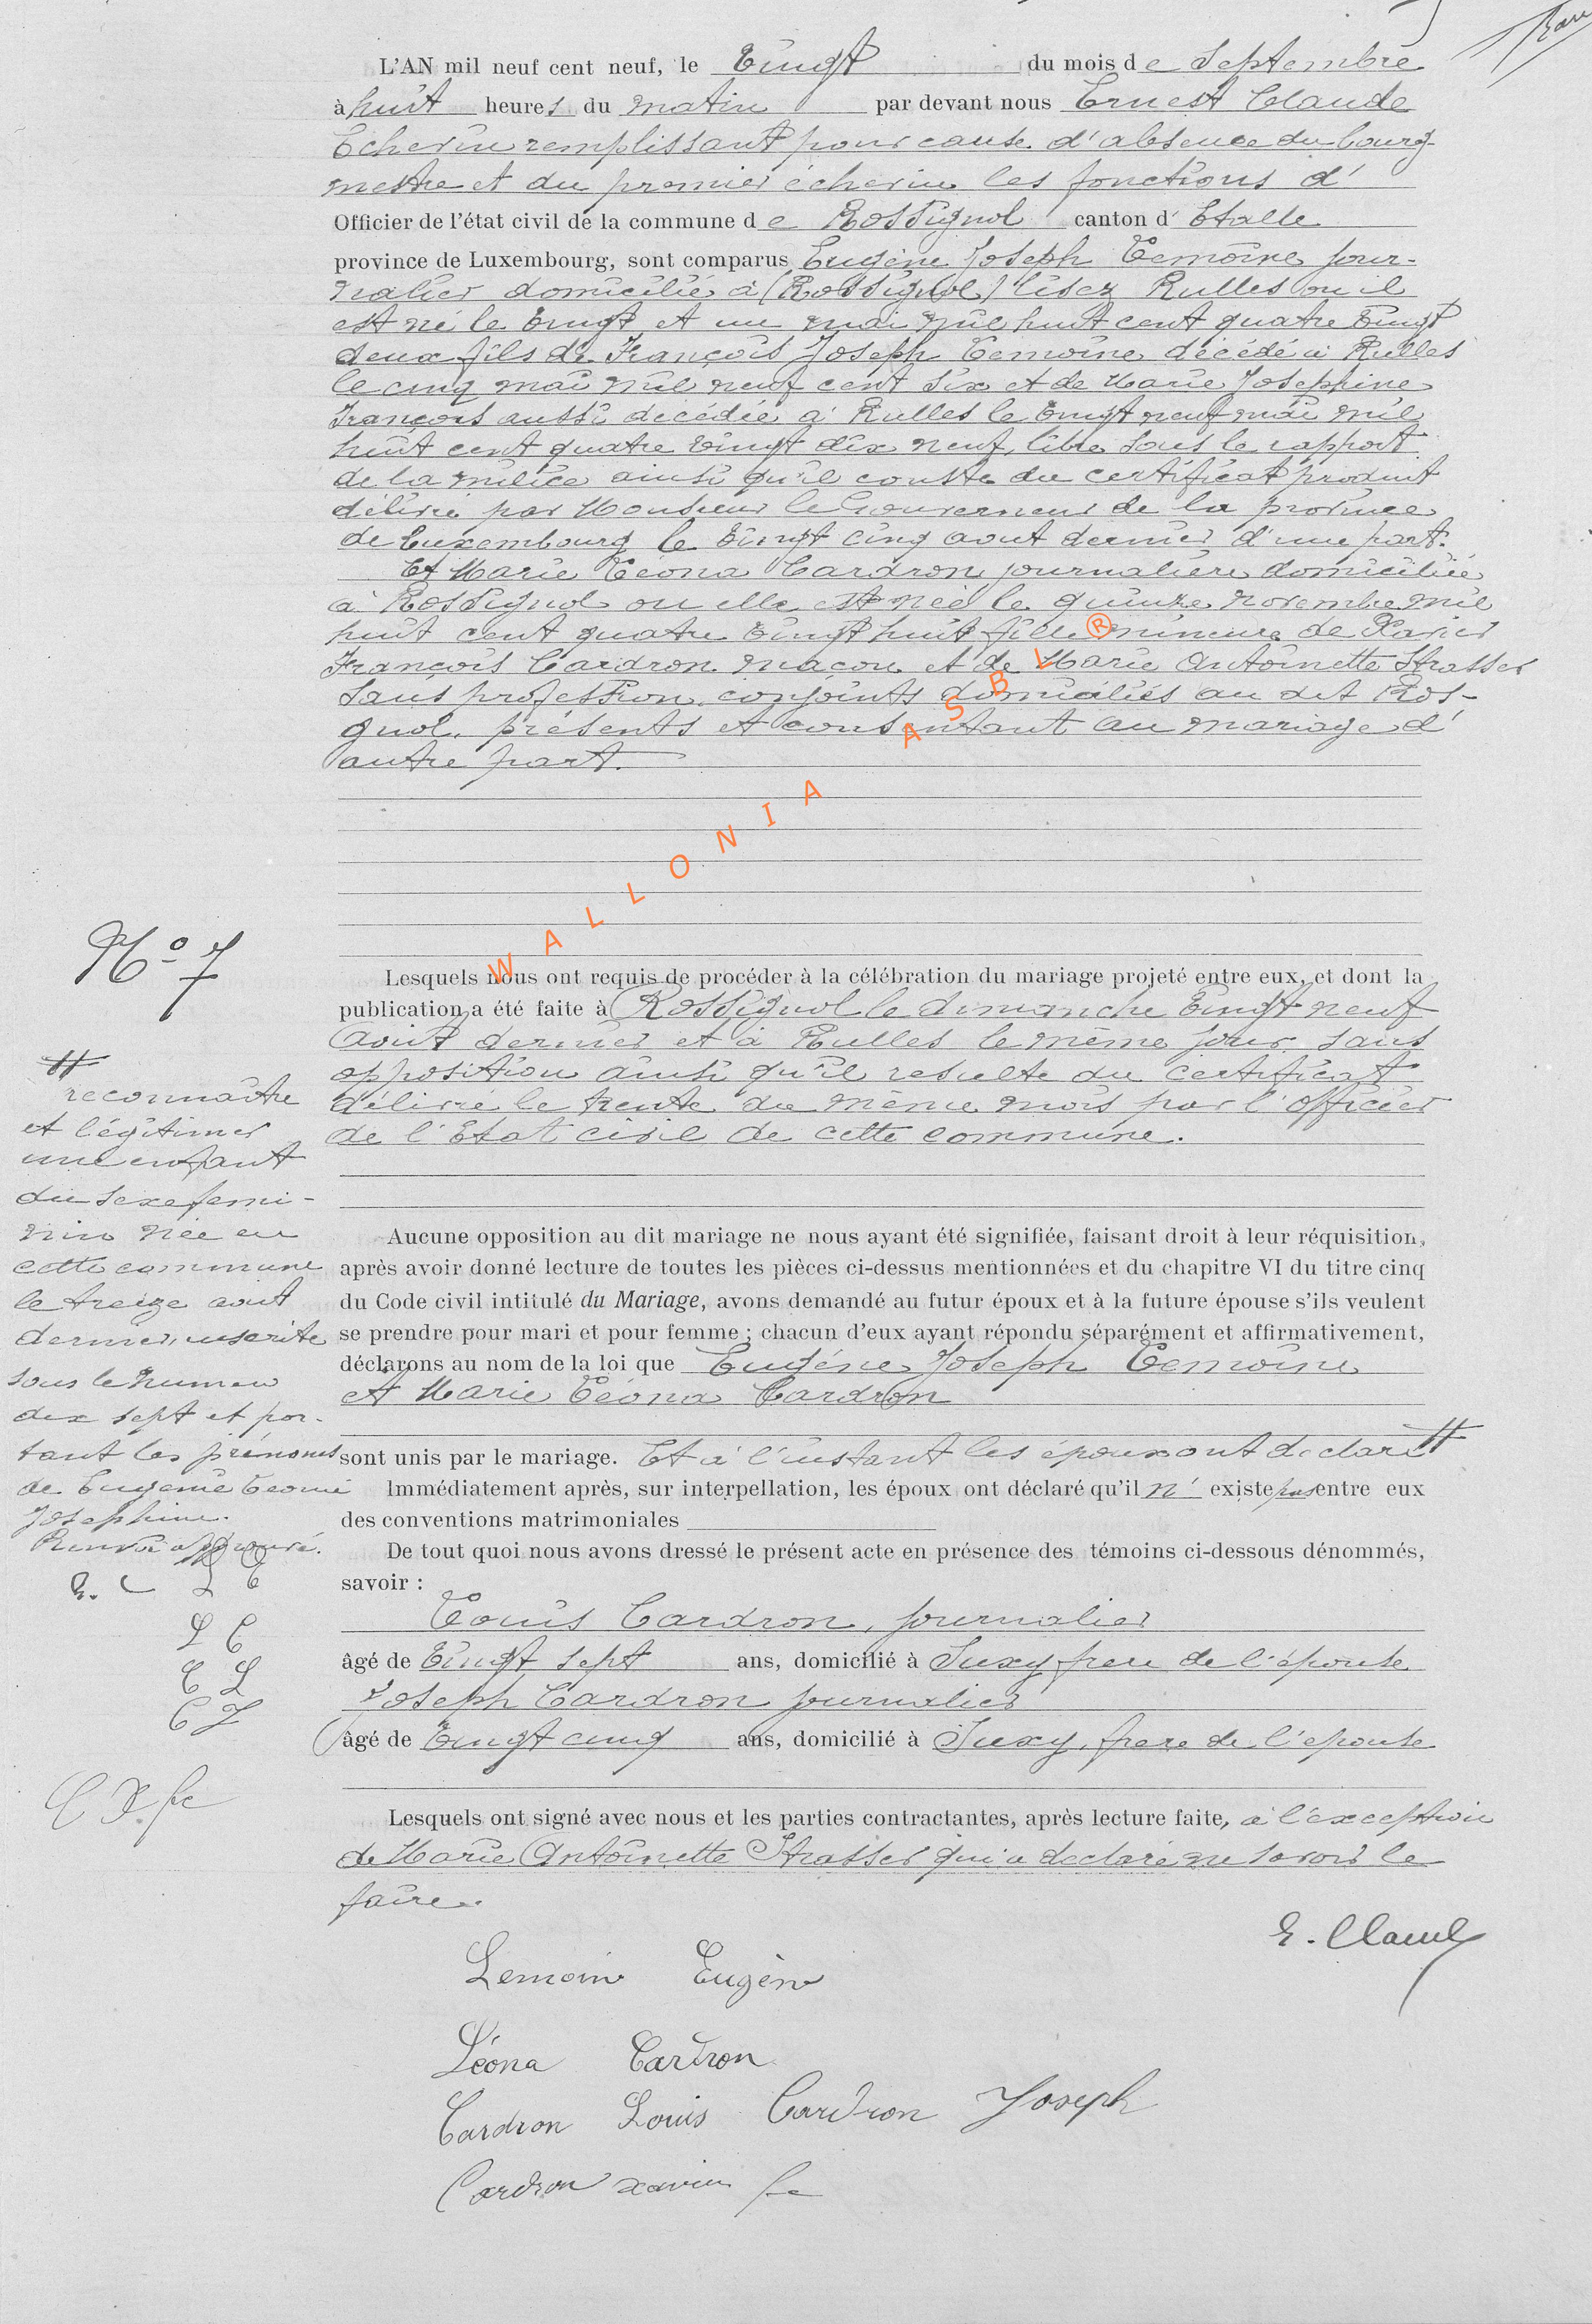 L'AN mil neuf cent neuf, le vingt du mois de Septembre
à huit heures du matin par devant nous Ernest Claude
Echevin remplissant pour cause d'absence du bourg-
mestre et du premier échevin les fonctions d'
Officier de l'état civil de la commune de Rossignol canton d'Etalle
province de Luxembourg, sont comparus Eugène Joseph Lemoine jour-
nalier domicilié à (Rossignol) lisez Rulles ou il
est né le vingt et un mai mil huit cent quatre vingt
deux fils de François Joseph Lemoine décédé à Rulles
le cinq mai mil neuf cent six et de Marie Josephine
François aussi décédée à Rulles le vingt neuf mai mil
huit cent quatre vingt dix neuf, libre sous le rapport
de la milice ainsi qu'il conste du certificat produit
délivré par Monsieur le Gouverneur de la province
de Luxembourg le vingt cinq aout dernier d'une part.
Et Marie Léona Cardron journalière domiciliée
à Rossignol ou elle est née le quinze novembre mil
huit cent quatre vingt huit fille mineure de Xavier
François Cardron maçon et de Marie Antoinette Strasser
sans profession conjoints domiciliés au dit Ros-
gnol, présents et consentant au mariage d'
autre part.
WALLONIA ASBL ®
No 7
Lesquels nous ont requis de procéder à la célébration du mariage projeté entre eux, et dont la
publication a été faite à Rossignol le dimanche vingt neuf
Août dernier et à Rulles le même jour sans
opposition ainsi qu'il resulte du certificat
délivré le trente du même mois par l'officier
de l'Etat civil de cette commune.
Aucune opposition au dit mariage ne nous ayant été signifiée, faisant droit à leur réquisition,
après avoir donné lecture de toutes les pièces ci-dessus mentionnées et du chapitre VI du titre cinq
du Code civil intitulé du Mariage, avons demandé au futur époux et à la future épouse s'ils veulent
se prendre pour mari et pour femme ; chacun d'eux ayant répondu séparément et affirmativement,
déclarons au nom de la loi que Eugéne Joseph Lemoine
et Marie Léona Cardron
sont unis par le mariage. Et à l'instant les époux ont declaré #
Immédiatement après, sur interpellation, les époux ont déclaré qu'il n' existe pas entre eux
des conventions matrimoniales
De tout quoi nous avons dressé le présent acte en présence des témoins ci-dessous dénommés,
savoir :
Louis Cardron, journalier
âgé de vingt sept ans, domicilié à Suxy frere de l'épouse
Joseph Cardron journalier
âgé de vingt cinq ans, domicilié à Suxy, frere de l'epouse
Lesquels ont signé avec nous et les parties contractantes, après lecture faite, à l'exception
de Marie Antoinette Strasser qui a declaré ne savoir le
faire.
#
reconnaître
et légitimer
une enfant
du sexe femi-
nin née en
cette commune
le treize aout
dernier, inscrite
sous le numero
dix sept et por-
tant les prénoms
de Eugenie Leonie
Josephine.
Renvoi approuvé.
E. C L E
L C
C L
C J
C X. fc
E. Claude
Lemoine Eugène
Léona Cardron
Cardron Louis Cardron Joseph
Cardron xavier fc